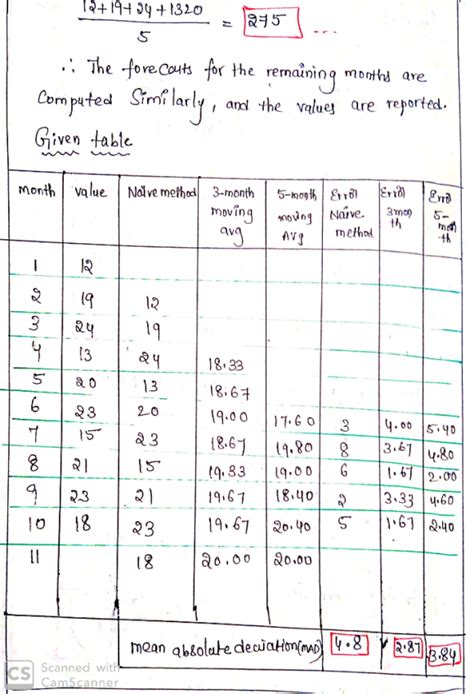 12+19+24+1320
5
= 275 ...
∴ The forecasts for the remaining months are
computed Similarly, and the values are reported.
Given table
month value Naive method 3-month moving avg 5-month moving Avg Error Naive method Error 3mon th Error 5-mon th
1 12
2 19 12
3 24 19
4 13 24 18.33
5 20 13 18.67
6 23 20 19.00 17.60 3 4.00 5.40
7 15 23 18.67 19.80 8 3.67 4.80
8 21 15 19.33 19.00 6 1.67 2.00
9 23 21 19.67 18.40 2 3.33 4.60
10 18 23 19.67 20.40 5 1.67 2.40
11 18 20.00 20.00
mean absolute deviation(MAD) 4.8 2.87 3.84
CS Scanned with
CamScanner